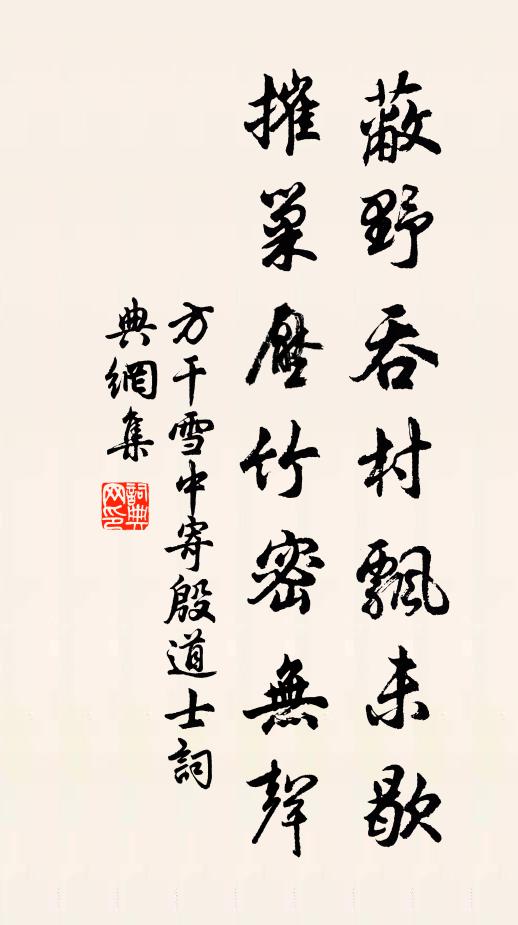 蔽野吞村飄未歇
摧巢壓竹密無聲
方干雪中寄殷道士詞
典網集
詞典網印